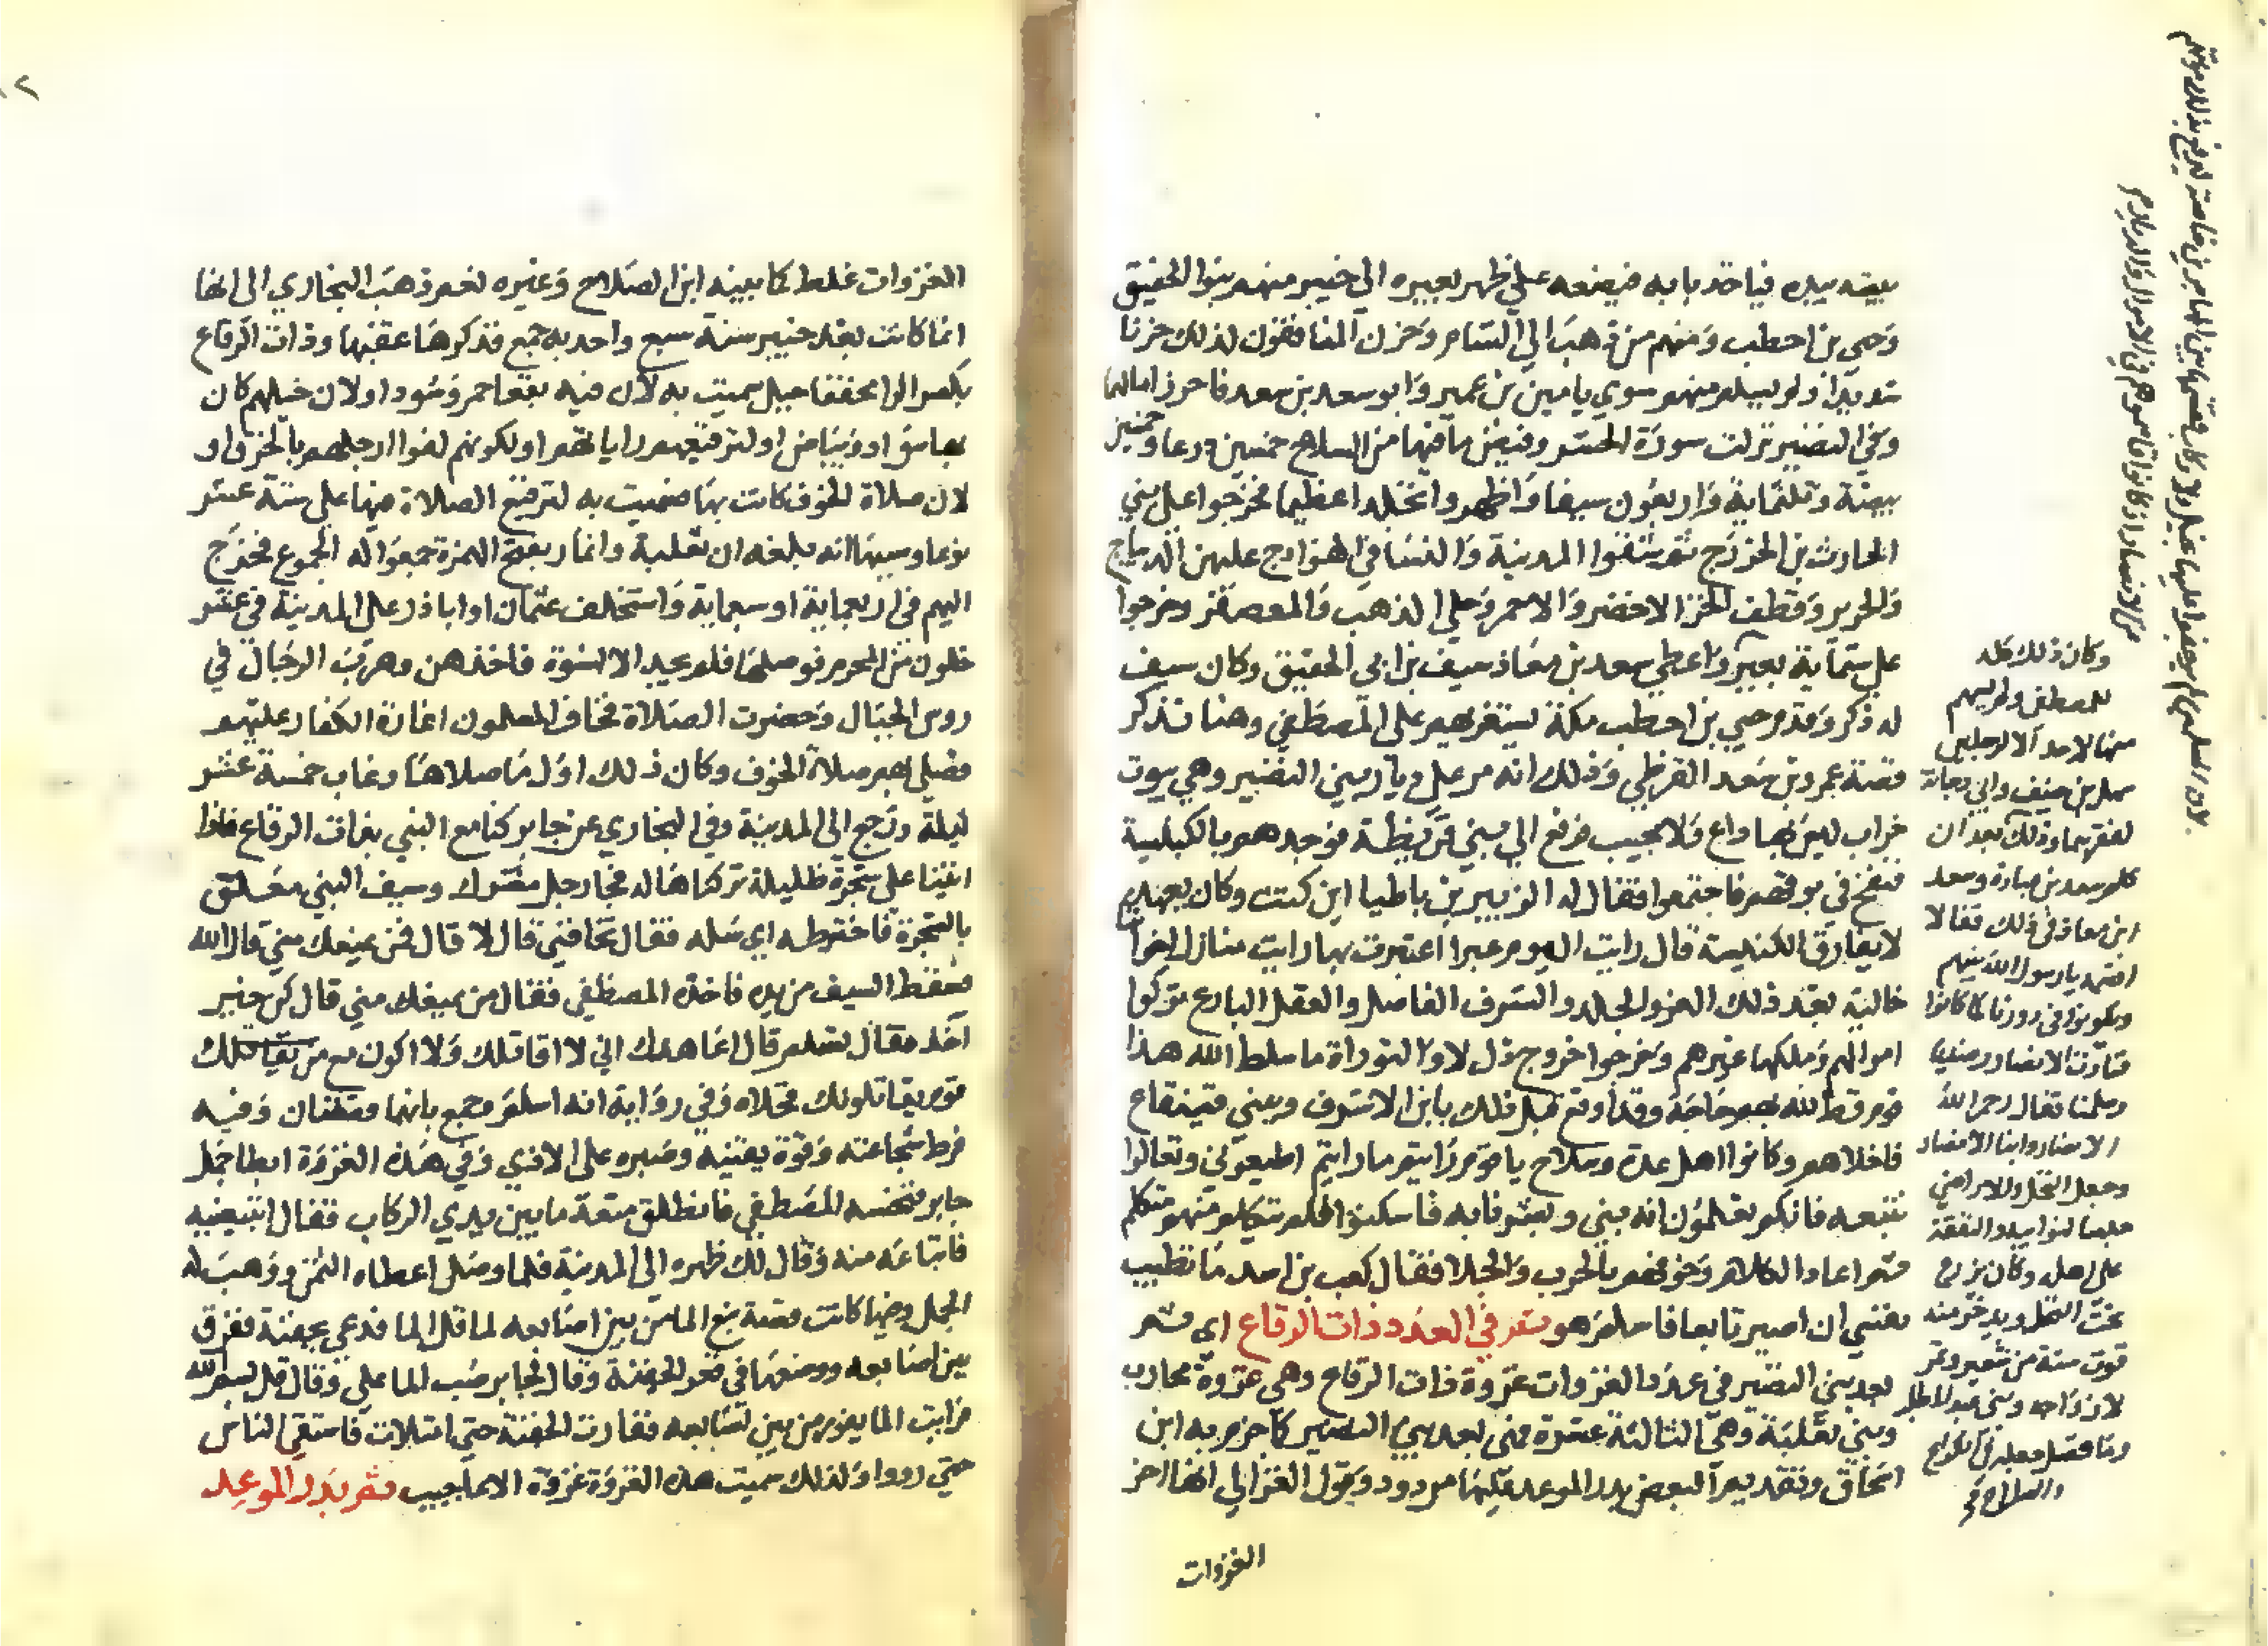 بيته بيده فياخذ بابه فيضعه علي ظهر بعيره الي خيبر منهم بنوا الحقيق
وحيي بن احطب ومنهم من ذهب الي الشام وحزن المنافقون لذلك حزنا
شديدا ولم يسلم منهم سوي يامين بن عمير وابو سعد بن سعد فاحرزا اموالهما
وفي النضير نزلت سورة الحشر وقبض ما فيها من السلاح خمسين درعا وخمسين
بيضة وثلثماية واربعون سيفا واظهروا تجلدا عظيما فخرجوا علي بني
الحارث بن الخزرج ثم شقوا المدينة والنسا في الهوادج عليهن الديباج
والحرير وقطف الخز الاخضر والاحمر وحلي الذهب والمعصفر وخرجوا
علي ستماية بعير واعطي سعد بن معاذ سيف بن ابي الحقيق وكان سيف
له ذكر وقدم حيي بن احطب مكة يستغزيهم على المصطفي وهنا تذكر
قصة عمرو بن سعد القرظي وذلك انه مر علي ديار بني النضير وهي بيوت
خراب ليس بها داع ولا مجيب فرجع الي بني قريظة فوجدهم بالكنيسة
فنفخ في بوقهم فاجتمعوا فقال له الزبير بن باطيا اين كنت وكان
لا يفارق الكنيسة قال رايت اليوم عبرا اعتبرت بها رايت منازل اخواننا
خالية بعد ذلك العز والجلد والشرف الفاضل والعقل البارع تركوا
اموالهم وملكها غيرهم وخرجوا خروج ذل لا والتوراة ما سلط الله هذا
قوم قط لله بهم حاجة وقد اوقع قبل ذلك بابن الاشرف وببني قينقاع
فاجلاهم وكانوا اهل عدة وسلاح يا قوم رايتم ما رايتم اطيعوني وتعالوا
نتبعه فانكم تعلمون انه نبي وبشرنا به فاسكتوا فلم يتكلم منهم متكلم
ثم اعاد الكلام وخوفهم بالحرب والجلا فقال كعب بن اسد ما تطيب
نفسي ان اصير تابعا فاسلم هو ثم في العدد ذات الرقاع اي ثم
بعد بني النضير في عدد الغزوات غزوة ذات الرقاع وهي غزوة محارب
وبني ثعلبة وهي الثالثة عشرة فهي بعد بني النضير كما جزم به ابن
اسحاق وتقديم البعض بدر الموعد عليها مردود وقول الغزالي انها اخر
الغزوات
وكان ذلك كله
للمصطفى ولم يسهم
منها لاحد الا لرجلين
سهل بن حنيف وابي دجانة
لفقرهما وذلك بعد ان
كلم سعد بن عبادة وسعد
ابن معاذ في ذلك فقالا
اقسمه يا رسول الله بينهم
ويكونوا في دورنا كما كانوا
وقالت الانصار رضينا
وسلمنا فقال رحم الله
الانصار وابنا الانصار
علي اهله وكان يزرع
تحت النخل ويدخر منه
قوت سنة من شعير وتمر
لازواجه وبني عبد المطلب
وما فضل جعله في الكراع
والسلاح
الغزوات غلط كما بينه ابن الصلاح وغيره نعم ذهب البخاري الي انها
انما كانت بعد خيبر سنة سبع واحد به جمع فذكرها عقبها وذات الرقاع
بكسر الرا مخففا جبل سميت به لان فيه بقعا حمر وسودا او لان خيلهم كان
بها سواد وبياض او لترقيعهم راياتهم او لكونهم لفوا ارجلهم بالخرق او
لان صلاة الخوف كانت بها فسميت به لترقيع الصلاة فيها علي ستة عشر
نوعا وسببها انه بلغه ان ثعلبة وانمار بفتح الهمزة جمعوا له الجموع فخرج
اليهم في اربعماية او سبعماية واستخلف عثمان او اباذر علي المدينة في عشر
خلون من المحرم فوصلها فلم يجد الا النسوة فاخذهن وهربت الرجال في
روس الجبال وحضرت الصلاة فخاف المسلمون اغارة الكفار عليهم
فصلي بهم صلاة الخوف وكان ذلك اول ما صلاها وغاب خمسة عشر
ليلة ورجع الي المدينة وفي البخاري عن جابر كنا مع النبي بذات الرقاع فاذا
اتينا علي شجرة ظليلة تركناها له فجا رجل مشرك وسيف النبي معلق
بالشجرة فاخترطه اي سله فقال تخافني قال لا قال فمن يمنعك مني قال الله
فسقط السيف من يده فاخذه المصطفي فقال من يمنعك مني قال كن خير
آخذ فقال تسلم قال اعاهدك اني لا اقاتلك ولا اكون مع من يقاتلك
قوم يقاتلونك فخلاه وفي رواية انه اسلم وجمع بانهما قصتان وفيه
فرط شجاعته وقوة يقينه وصبره على الاذي وفي هذه الغزوة ابطا جمل
جابر فنخسه المصطفي فانطلق متقدما بين يدي الركاب فقال اتبيعنيه
فابتاعه منه وقال لك ظهره الي المدينة فلما وصل اعطاه الثمن ووهب له
الجمل وفيها كانت قصة نبع الما من بين اصابعه لما قل الما فدعي بجفنة ففرق
بين اصابعه ووضعها في قعر الجفنة وقال لجابر صب الما علي وقال قل بسم الله
فرايت الما يفور من بين اصابعه ففارت الجفنة حتي امتلات فاستقي الناس
حتي رووا ولذلك سميت هذه الغزوة غزوة الاعاجيب ثم بدر الموعد